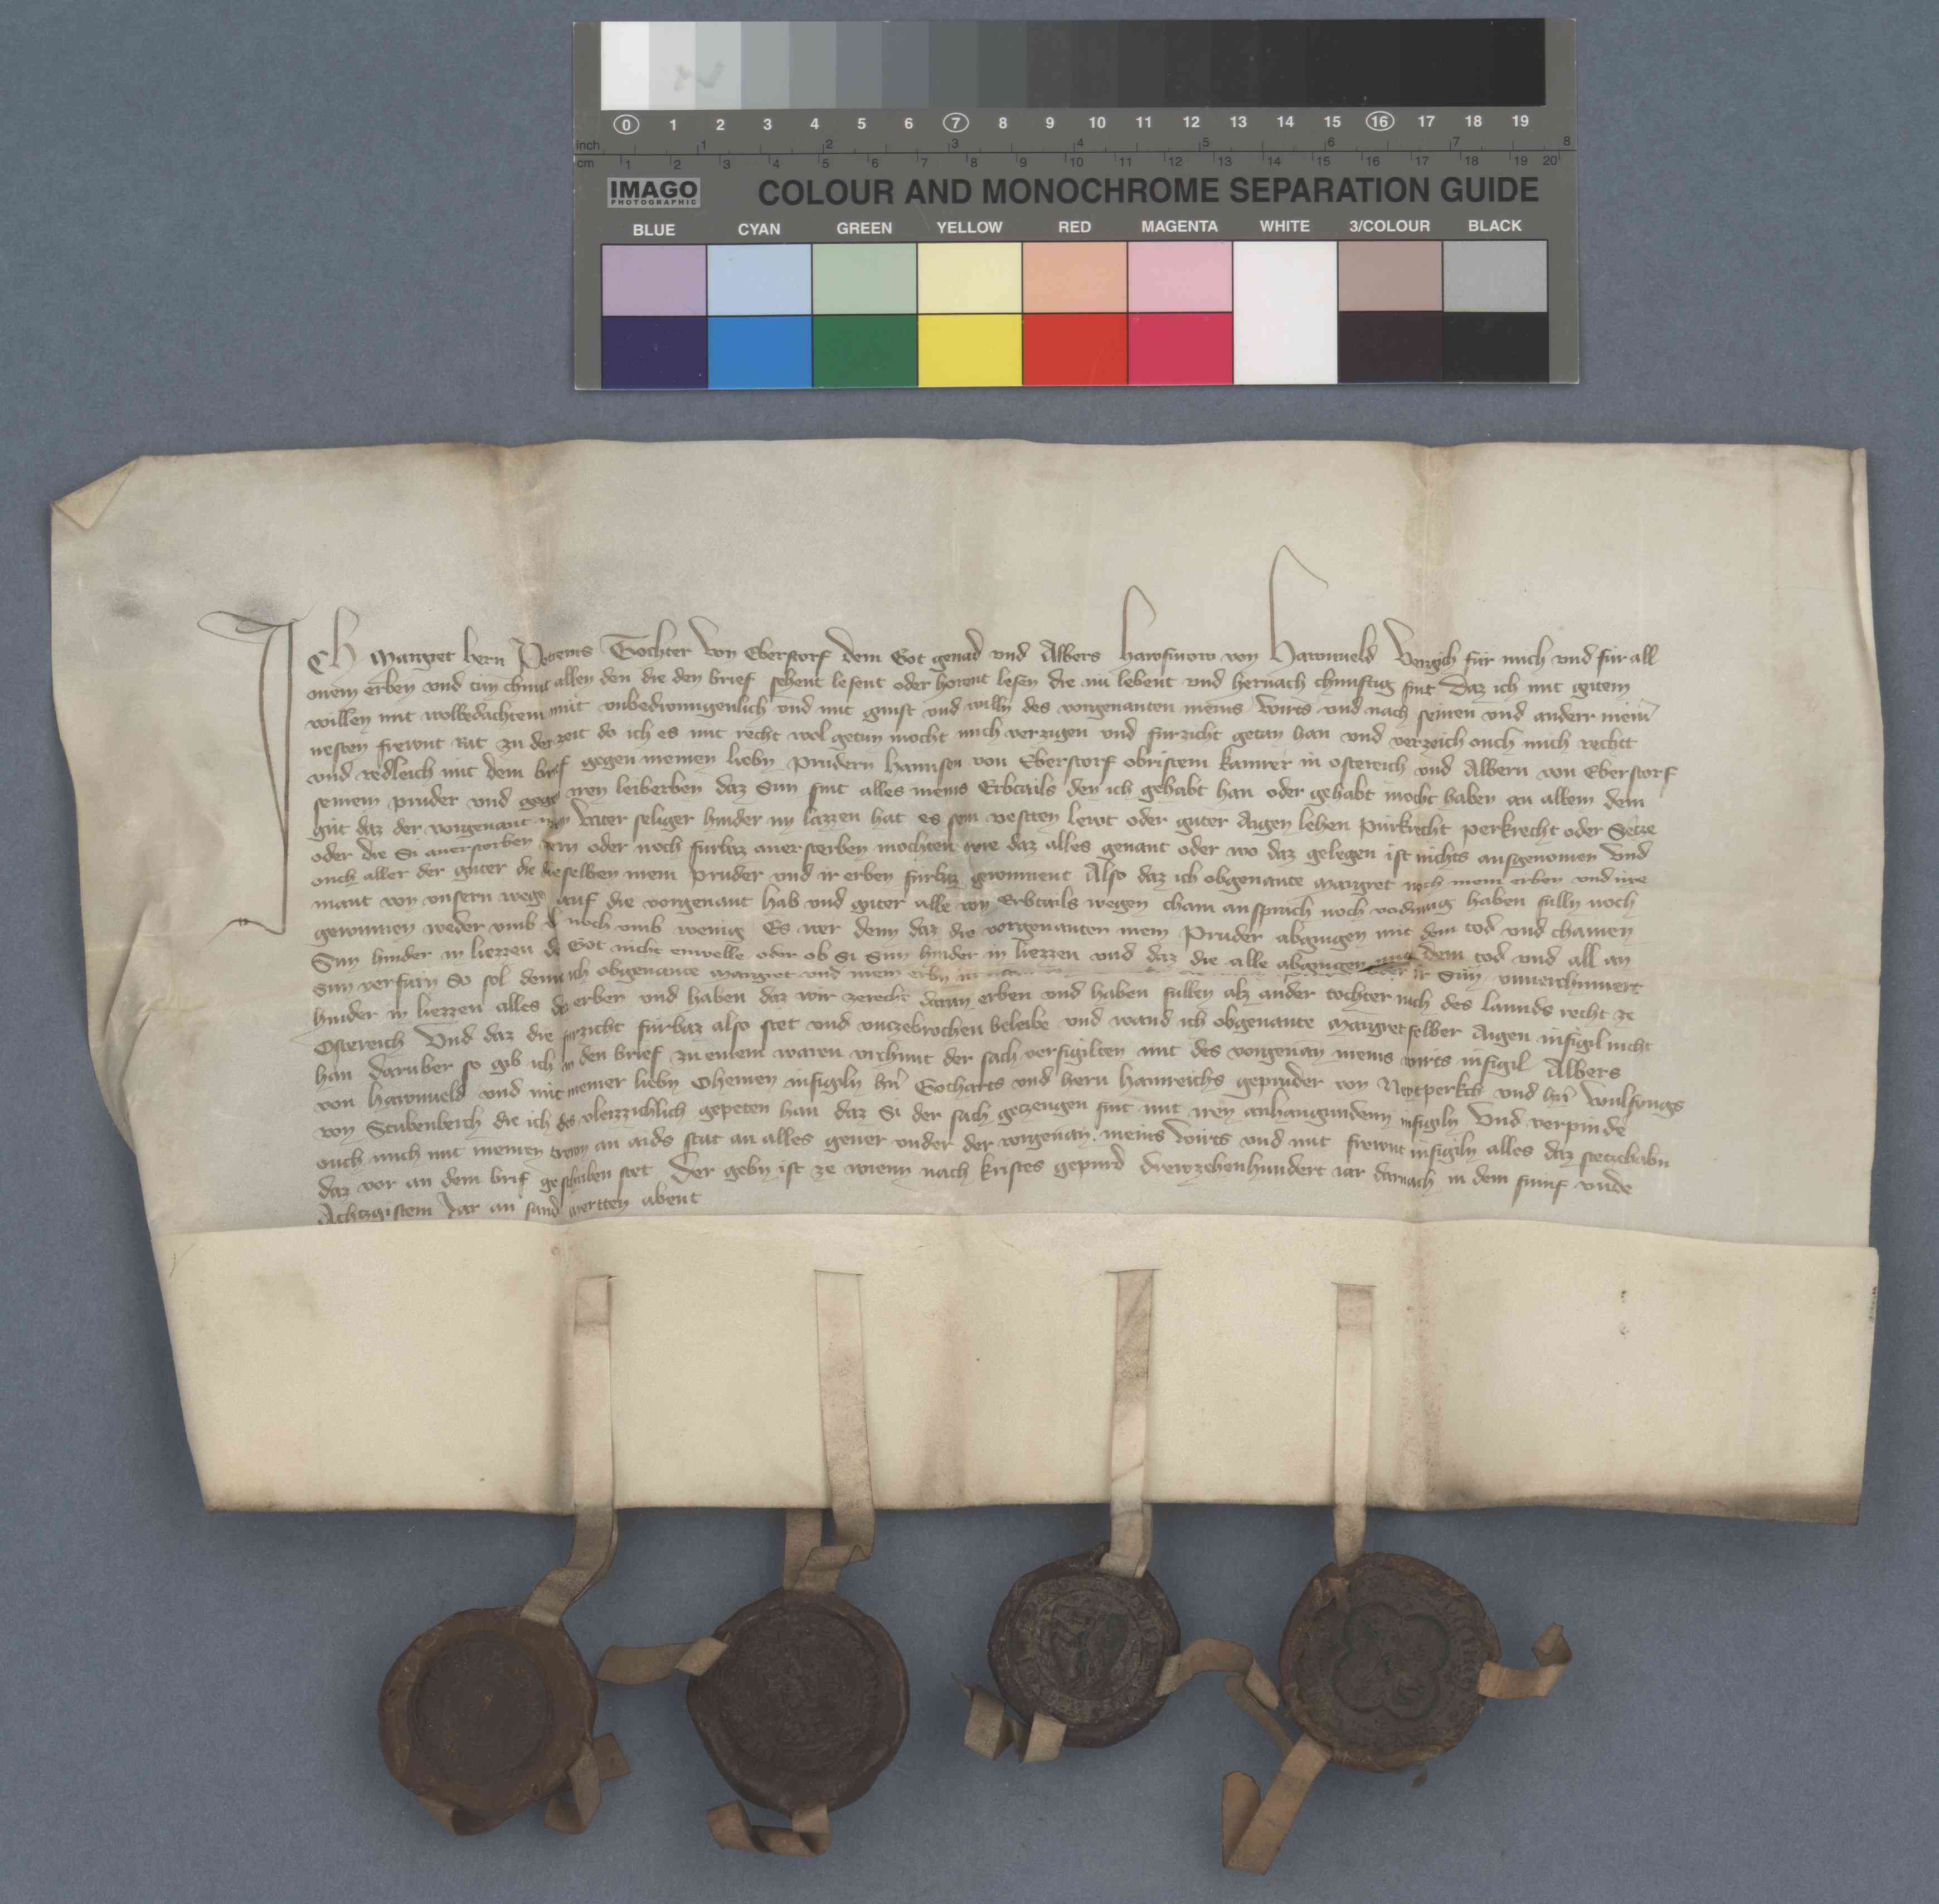 0 1 2 3 4 5 6 7 8 9 10 11 12 13 14 15 16 17 18 19
inch 1 2 3 4 5 6 7 8
cm 1 2 3 4 5 6 7 8 9 10 11 12 13 14 15 16 17 18 19 20
IMAGO COLOUR AND MONOCHROME SEPARATION GUIDE
PHOTOGRAPHIC
BLUE CYAN GREEN YELLOW RED MAGENTA WHITE 3/COLOUR BLACK
Ich Margret hern Tochter von Eberstorf dem Got genad und Albers von Hawnueld Vergich für mich und für all
mein erben und tún chunt allen den die den brief sehent lesent oder horent lesen die nú lebent und hernach chunftig sint Daz ich mit gútem
willen mit wolbedachtem mút unbedwungenlich und mit gunst und willn des vorgenanten meins wirts und nach seinen und anderr meiner
nesten frewnt Rat zu der zeit do ich es mit recht wol getun mocht mich verzigen und fürzicht getan han und verzeich ouch mich recht
und redleich mit dem brief gegen meinen liebn Prúdern Hannsen von Eberstorf obristem kamrer in ostereich und Albern von Eberstorf
seinem prúder und gegen iren leiberben daz Sun sint alles meins Erbtails den ich gehabt han oder gehabt mocht haben an allem dem
gút daz der vorgenant mein Vater seliger hinder im lazzen hat es sein vesten lewt oder gúter Aygen lehen Púrkrecht perkrecht oder Setze
oder die Si anerstorben wern oder noch fúrbaz anersterben mochten wie daz alles genant oder wo daz gelegen ist nichts ausgenomen Und
ouch aller der gúter die dieselben mein prúder und ir erben fúrbaz gewinnent Also daz ich obgenante Margret noch mein erben und nie
mant von unsern wegen auf die vorgenant hab und gúter alle von Erbtails wegen chain ansprach noch vodrung haben sulln noch
gewinnen weder umb vil noch umb wenig Es wer denn daz die vorgenanten mein Prúder abgingen mit dem tod und chainen
Sun hinder in liezzen da Got nicht enwelle oder ob si Sun hinder in liezzen und daz die alle abgingen mit dem tod und all an
sun verfúrn So sol denn ich obgenante Margret und mein erbn ir Sun
hinder in liezzen alles daz erben und haben daz wir zerecht daran erben und haben sullen alz ander tochter nach des lannds recht ze
Ostereich Und daz die fúrzicht fúrbaz also stet und unczebrochen beleibe und wand ich obgenante Margret selber Aigen insigil nicht
han darúber so gib ich in den brief zu einem waren urchunt der sach versigilten mit des vorgenan meins wirts insigil Albers
von Hawnueld und mit meiner liebn Ohemen insigiln hern Gotharts und hern Hainreichs geprúder von und hern Wulfings
von Stubenberch die ich des vleizzichlich gepeten han daz Si der sach geczeugen sint mit iren anhangunden insigiln Und verpinde
ouch mich mit meinen trewn an aids stat an alles geuer under der vorgenan meins wirts und mit frewnt insigiln alles daz stetzehabn
daz vor an dem brif geschriben stet Der gebn ist ze wienn nach kristes gepurd drewzehenhundert iar darnach in dem funf unde
Achtzgistem Jar an sand abent